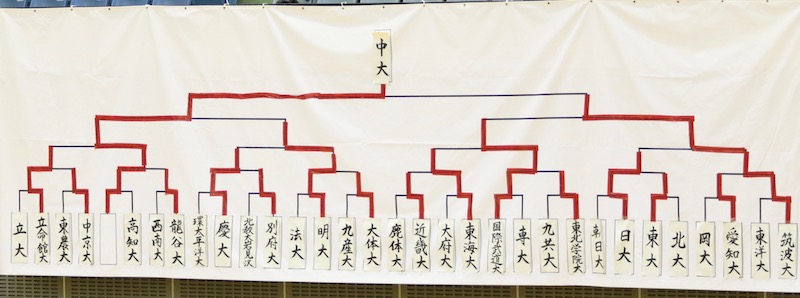 中大
立大
立命館大
東農大
中京大
高知大
西南大
龍谷大
環太平洋大
慶大
北教大岩見沢
別府大
法大
明大
九産大
大体大
鹿体大
近畿大
大府大
東海大
国際武道大
専大
九共大
東北学院大
日大
東大
北大
岡大
愛知大
東洋大
筑波大